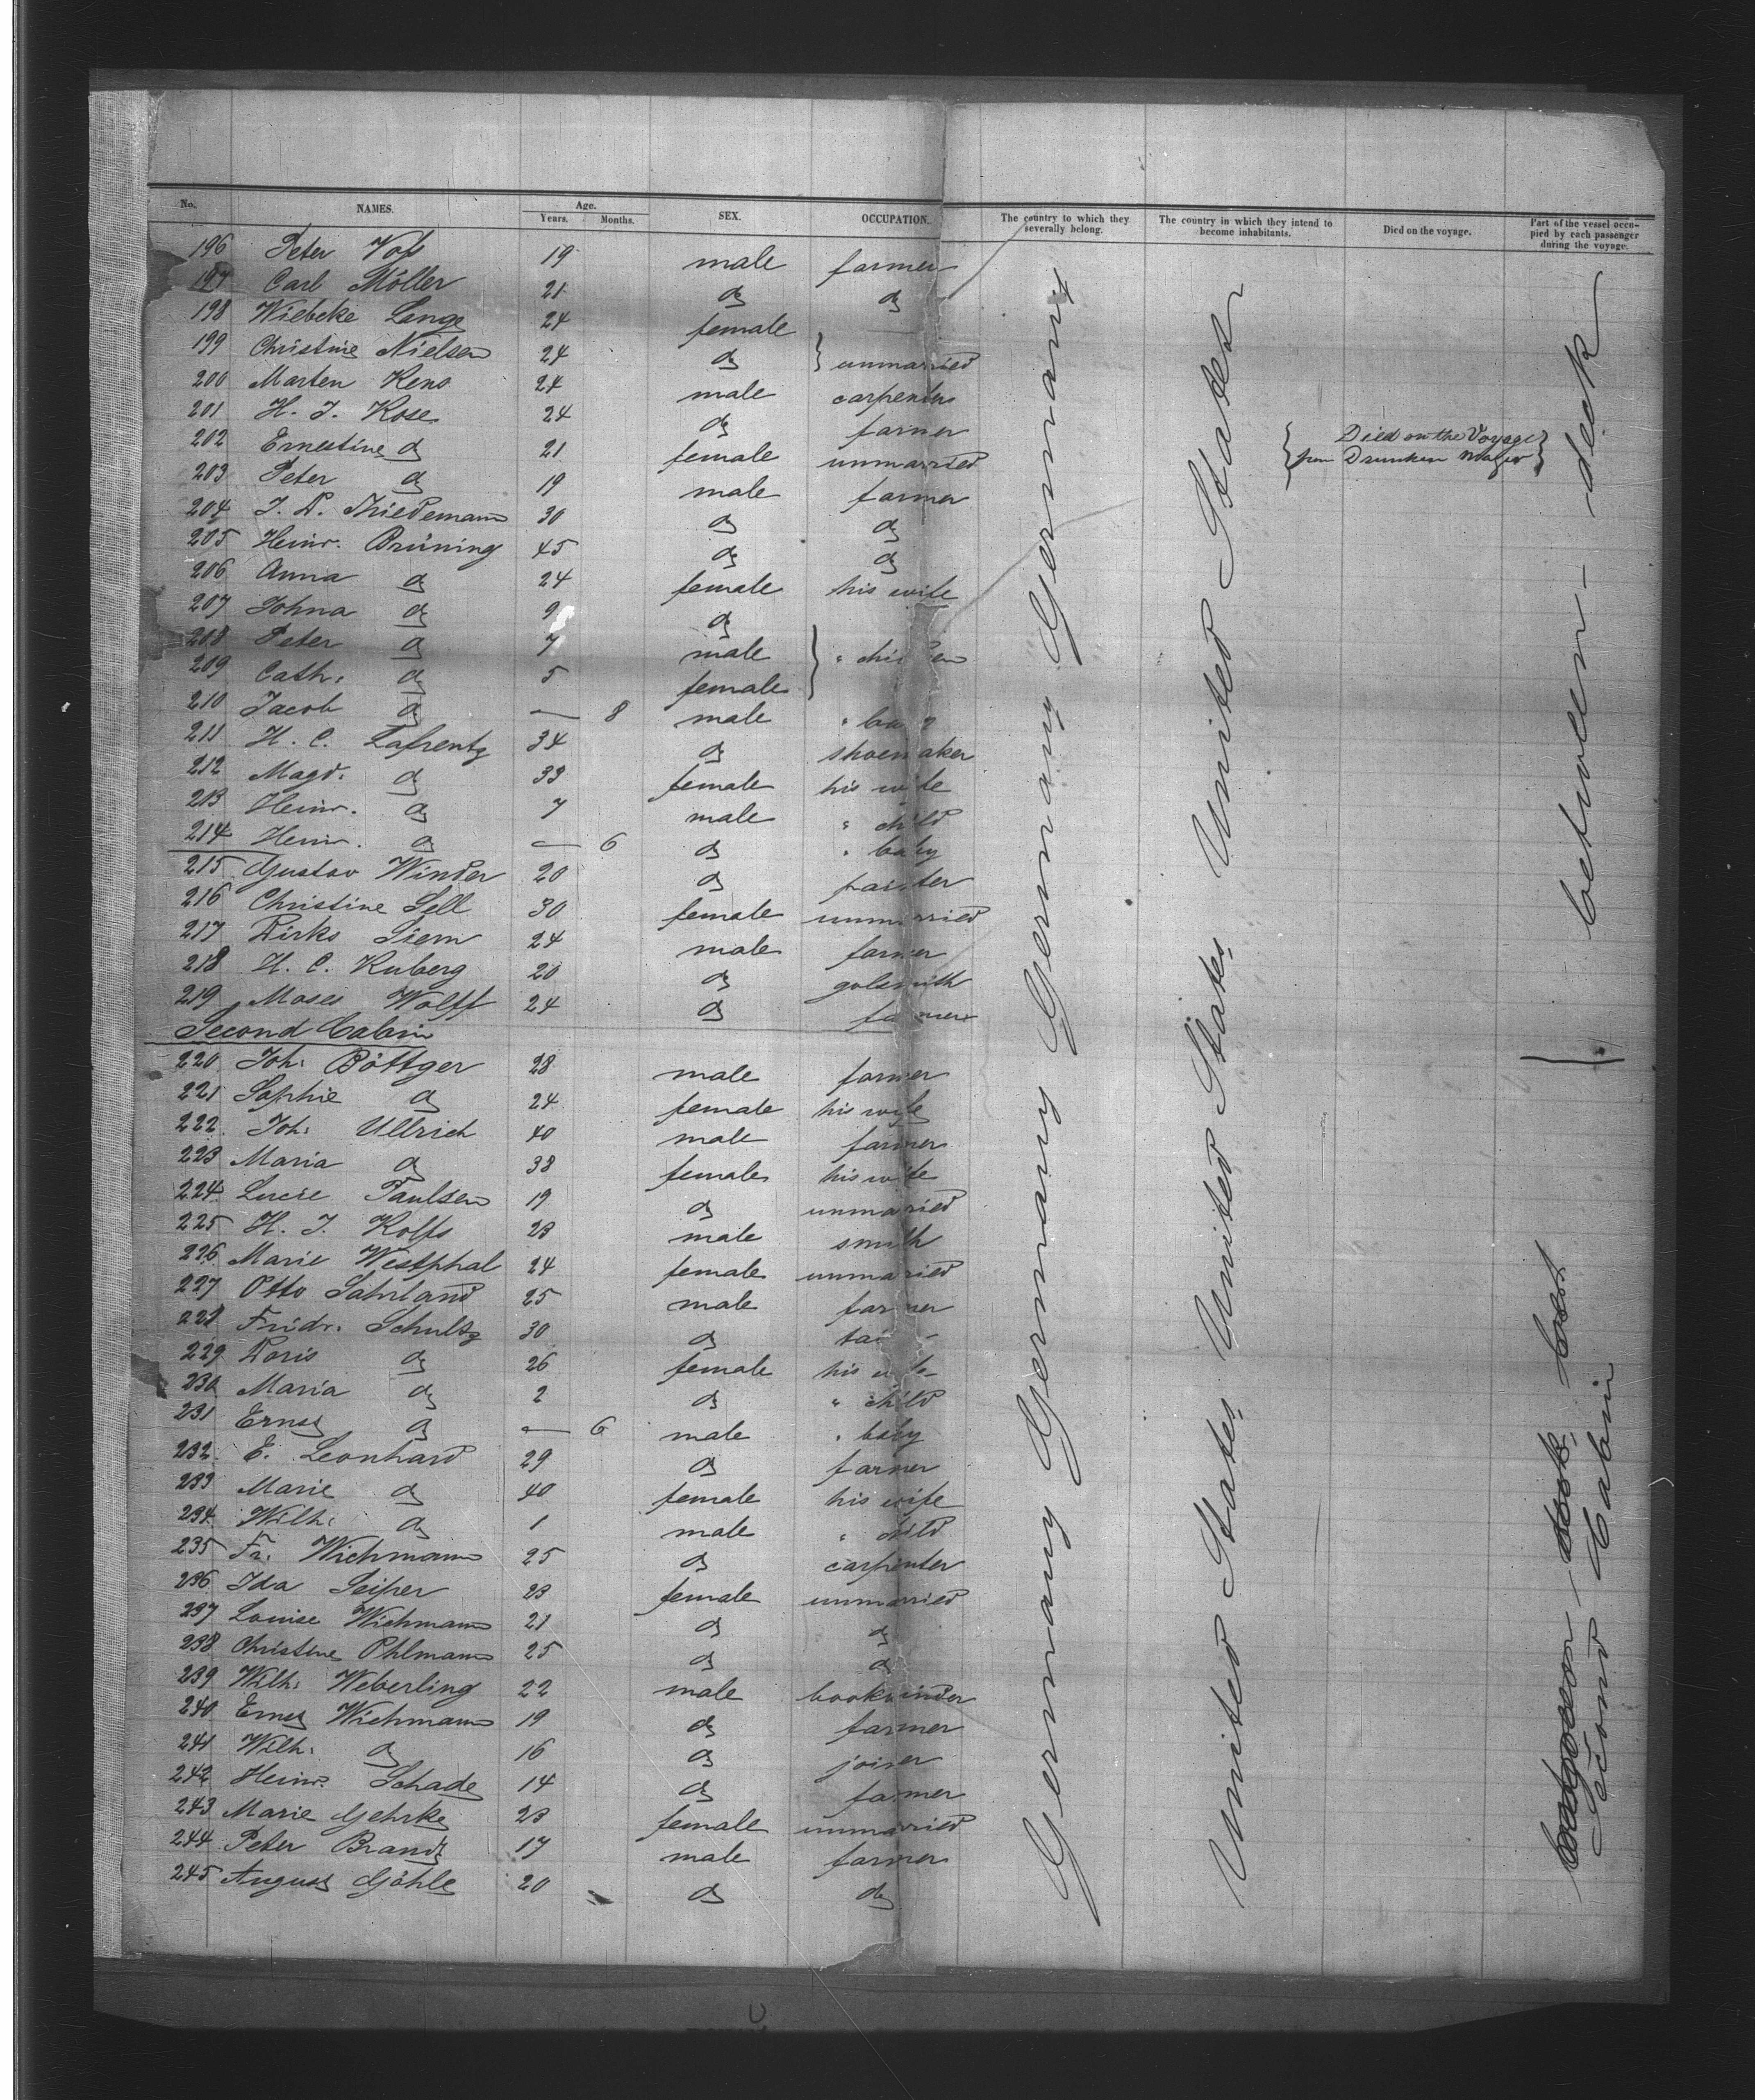 No. NAMES. Age. Years. Months. SEX. OCCUPATION. The country to which they severally belong. The country in which they intend to become inhabitants. Died on the voyage. Part of the vessel occupied by each passenger during the voyage.
196 Peter Voß 19 male farmer
197 Carl Möller 21 do do
198 Wiebcke Lange 24 female
199 Christine Nielsen 24 do } unmarried
200 Marten Kens 24 male carpenter
201 H. J. Rose 24 do farmer
202 Ernestine do 21 female unmarried
203 Peter do 19 male farmer
204 J. D. Thiedemann 30 do do
205 Heinr. Brüning 45 do do
206 Anna do 24 female his wife
207 Johna do 9 do
208 Peter do 7 male } " children
209 Cath: do 5 female
210 Jacob do — 8 male " baby
211 H. C. Lafrentz 34 do shoemaker
212 Magd: do 33 female his wife
213 Heinr. do 7 male " child
214 Heinr. do — 6 do " baby
215 Gustav Winder 20 do painter
216 Christine Sell 30 female unmarried
217 Dirks Siem 24 male farmer
218 H. C. Kuberg 20 do golsmith
219 Moses Wolff 24 do farmer
Second Cabin
220 Joh: Böttger 28 male farmer
221 Sophie do 24 female his wife
222 Joh: Ullrich 40 male farmer
223 Maria do 38 female his wife
224 Lucie Paulsen 19 do unmarried
225 H. J. Rolfs 23 male smith
226 Marie Westphal 24 female unmarried
227 Otto Sahrland 25 male farmer
228 Fridr. Schultz 30 do
229 Doris do 26 female his wife
230 Maria do 2 do " child
231 Ernst do — 6 male " baby
232 E. Leonhard 29 do farmer
233 Marie do 40 female his wife
234 Wilh: do 1 male " child
235 Fr: Wichmann 25 do carpenter
236 Ida Seiper 23 female unmarried
237 Louise Wichmann 21 do do
238 Christine Ohlmann 25 do do
239 Wilh: Weberling 22 male bookbinder
240 Ernst Wichmann 19 do farmer
241 Wilh: do 16 do joiner
242 Heinr. Schade 14 do farmer
243 Marie Gehrke 23 female unmarried
244 Peter Brandt 17 male farmer
245 August Göhle 20 do do
Germany Germany Germany Germany Germany
United States United States United States United States
{ Died on the Voyage }
from Drunken
between – deck
Second Cabin